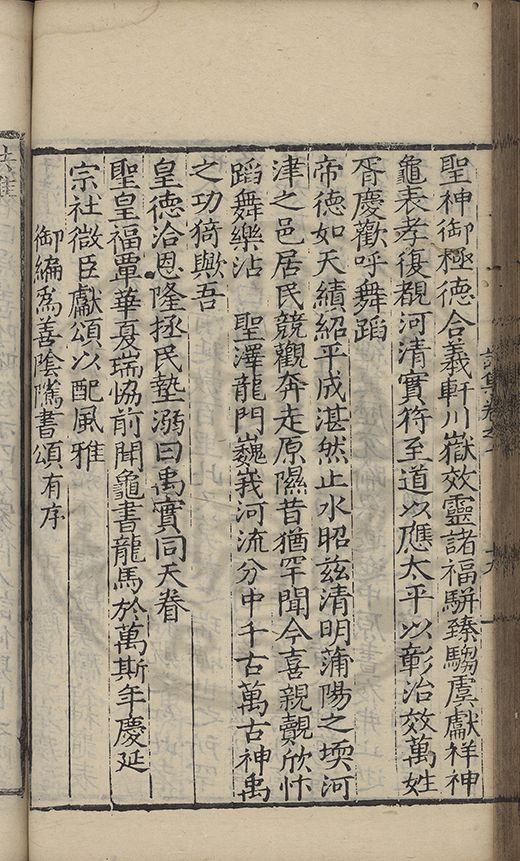 聖神御極德合羲軒川嶽效靈諸福駢臻騶虞獻祥神
龜表孝復覩河清實符至道以應太平以彰治效萬姓
胥慶歡呼舞蹈
帝德如天績紹平成湛然止水昭兹清明蒲陽之堧河
津之邑居民競觀奔走原隰昔猶罕聞今喜親覿欣忭
蹈舞樂沾 聖澤龍門巍我河流分中千古萬古神禹
之功猗歟吾
皇德洽恩隆拯民墊溺曰禹實同天眷
聖皇福覃華夏瑞恊前聞龜書龍馬於萬斯年慶延
宗社微臣獻頌以配風雅
御編爲善陰隲書頌有序